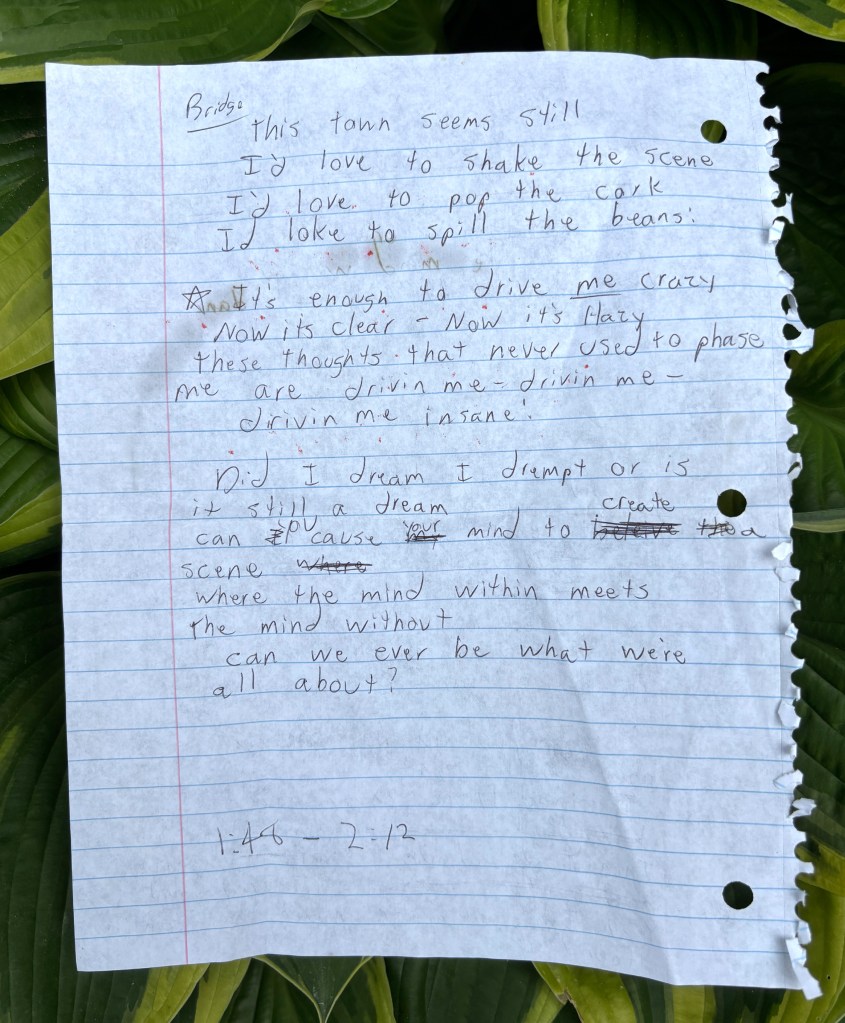 Bridge
this town seems still
I'd love to shake the scene
I'd love to pop the cork
Id loke to spill the beans:
☆ It's enough to drive me crazy
Now its clear - Now it's Hazy
these thoughts that never used to phase
me are drivin me - drivin me -
drivin me insane!
Did I dream I drempt or is
it still a dream
create
can you cause your mind to a
scene
where the mind within meets
the mind without
can we ever be what we're
all about?
1:48 - 2:12